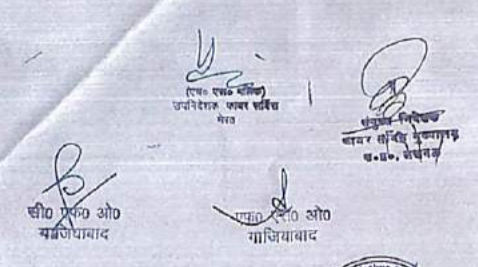 (एच० एस० मलिक)
उपनिदेशक फायर सर्विस
मेरठ
संयुक्त निदेशक
फायर सर्विस मुख्यालय
उ०प्र०, लखनऊ
सी0 एफ0 ओ0
गाजियाबाद
एफ0 एस0 ओ0
गाजियाबाद